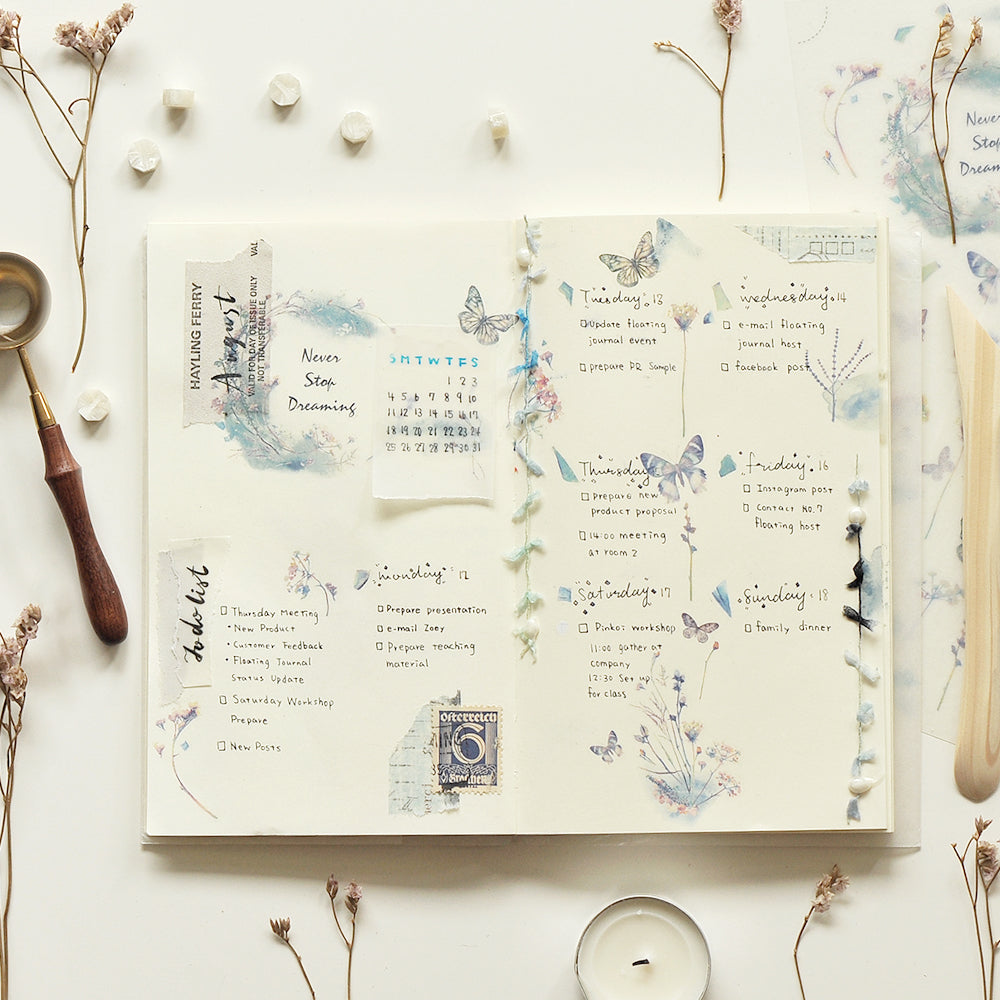 HAYLING FERRY
August
VAL
VALID FOR DAY OF ISSUE ONLY
NOT TRANSFERABLE
Never
Stop
Dreaming
S M T W T F S
1 2 3
4 5 6 7 8 9 10
11 12 13 14 15 16 17
18 19 20 21 22 23 24
25 26 27 28 29 30 31
To do list
□ Thursday Meeting
• New Product
• Customer Feedback
• Floating Journal
Status Update
□ Saturday Workshop
Prepare
□ New Posts
monday 12
□ Prepare presentation
□ e-mail Zoey
□ Prepare teaching
material
österreich
6
Tuesday 13
□ Update floating
journal event
□ prepare PR Sample
wednesday 14
□ e-mail floating
journal host
□ facebook post
Thursday
□ Prepare new
product proposal
□ 14:00 meeting
at room 2
friday 16
□ Instagram post
□ Contact NO.7
floating host
Saturday 17
□ Pinkoi workshop
11:00 gather at
company
12:30 Set up
for class
Sunday 18
□ family dinner
Never
Stop
Dream